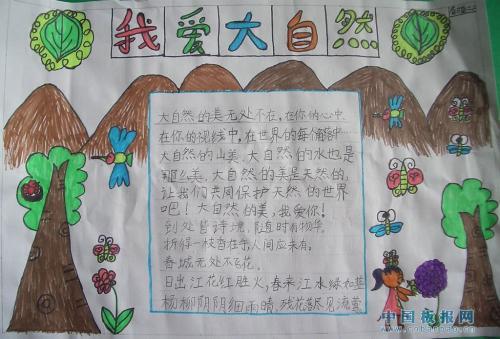 我爱大自然
大自然的美无处不在，在你的心中
在你的视线中，在世界的每个角落中
大自然的山美、大自然的水也是
那么美，大自然的美是天然的，
让我们共同保护天然的世界
吧！大自然的美，我爱你！
到处皆诗境，随时有物华。
折得一枝香在手，人间应未有。
春城无处不飞花。
日出江花红胜火，春来江水绿如蓝
杨柳阴阴细雨晴，残花落尽见流莺
中国板报网